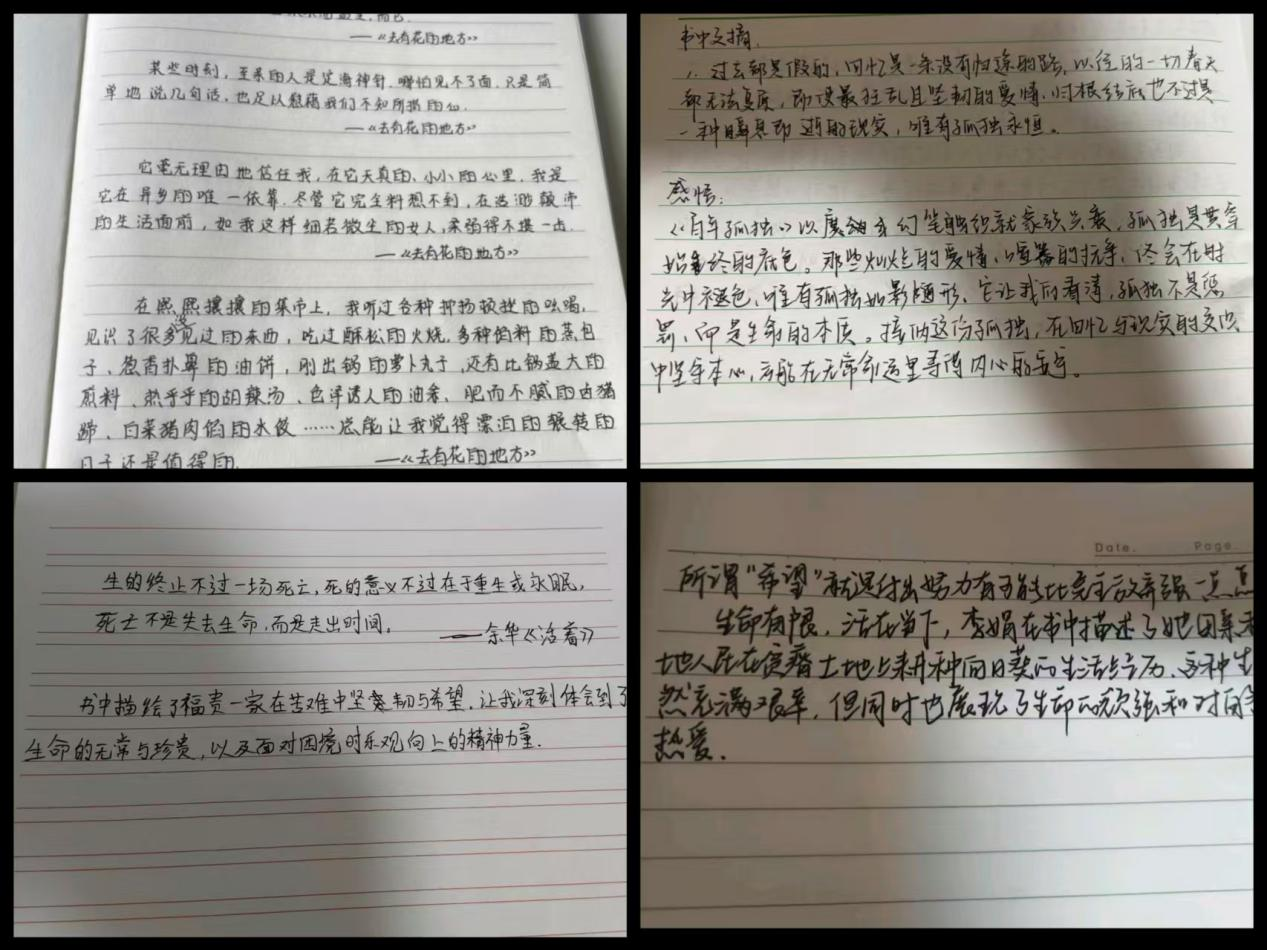 ——《去有花的地方》
某些时刻，至亲的人是定海神针，哪怕见不了面，只是简
单地说几句话，也足以慰藉我们不知所措的心.
——《去有花的地方》
它毫无理由地信任我，在它天真的、小小的心里，我是
它在异乡的唯一依靠.尽管它完全料想不到，在浩渺颠沛
的生活面前，如我这样细若微尘的女人，柔弱得不堪一击.
——《去有花的地方》
在熙熙攘攘的集市上，我听过各种抑扬顿挫的吆喝，
见识了很多没见过的东西，吃过酥松的火烧，多种馅料的蒸包
子、葱香扑鼻的油饼，刚出锅的萝卜丸子，还有比锅盖大的
煎料、热乎乎的胡辣汤、色泽诱人的油条、肥而不腻的卤猪
蹄、白菜猪肉馅的水饺……总能让我觉得漂泊的辗转的
日子还是值得的.
——《去有花的地方》
书中文摘.
1. 过去都是假的，回忆是一条没有归途的路，以往的一切春天
都无法复原，即使最狂乱且坚韧的爱情，归根结底也不过是
一种瞬息即逝的现实，唯有孤独永恒。
感悟：
《百年孤独》以魔幻笔触织就家族兴衰，孤独是贯穿
始终的底色。那些灿烂的爱情、喧嚣的抗争，终会在时
光中褪色，唯有孤独如影随形。它让我们看清，孤独不是惩
罚，而是生命的本质。接纳这份孤独，在回忆与现实的交织
中坚守本心，方能在无常命运里寻得内心的安宁。
生的终止不过一场死亡，死的意义不过在于重生或永眠，
死亡不是失去生命，而是走出时间。
——余华《活着》
书中描绘了福贵一家在苦难中坚韧与希望，让我深刻体会到了
生命的无常与珍贵，以及面对困境时乐观向上的精神力量.
Date. Page.
所谓“希望”就是付出努力有可能比完全放弃强一点点
生命有限，活在当下，李娟在书中描述了她因亲和
地人民在贫瘠土地上耕种向日葵的生活与经历，这种生
然充满艰辛，但同时也展现了生命的顽强和对
热爱.